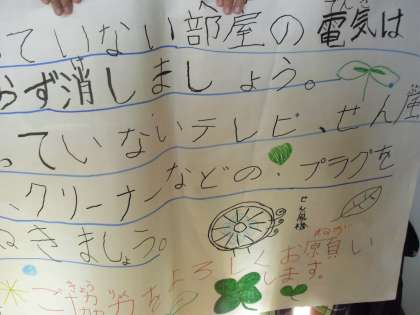 っていない部屋の電気は
らず消しましょう。
っていないテレビ、せん
クリーナーなどのプラグを
ぬきましょう。
せん風機
よろしくお願い
します。
ご協力